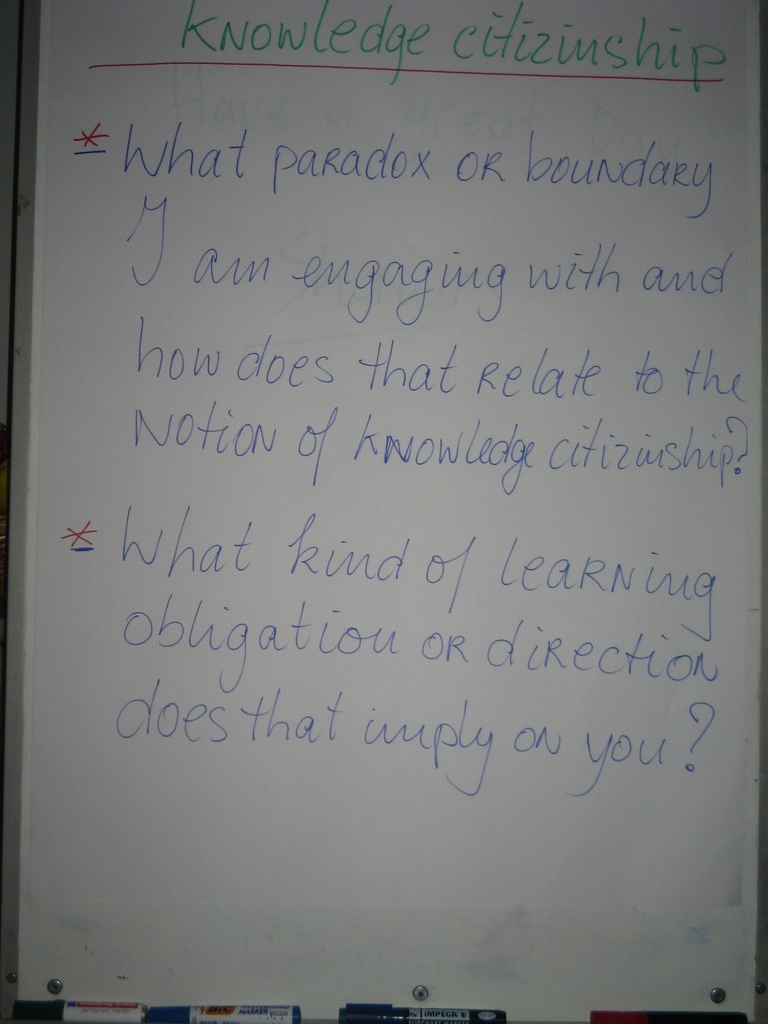 KNOWledge citizinship
* What paradox or boundary
I am engaging with and
how does that relate to the
Notion of KNOWledge citizinship?
* What kind of learning
obligation or direction
does that imply on you?
BIC MARKER
IMPEGA